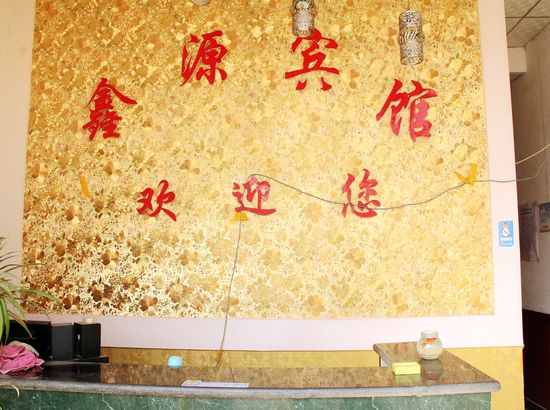 鑫源宾馆
欢迎您